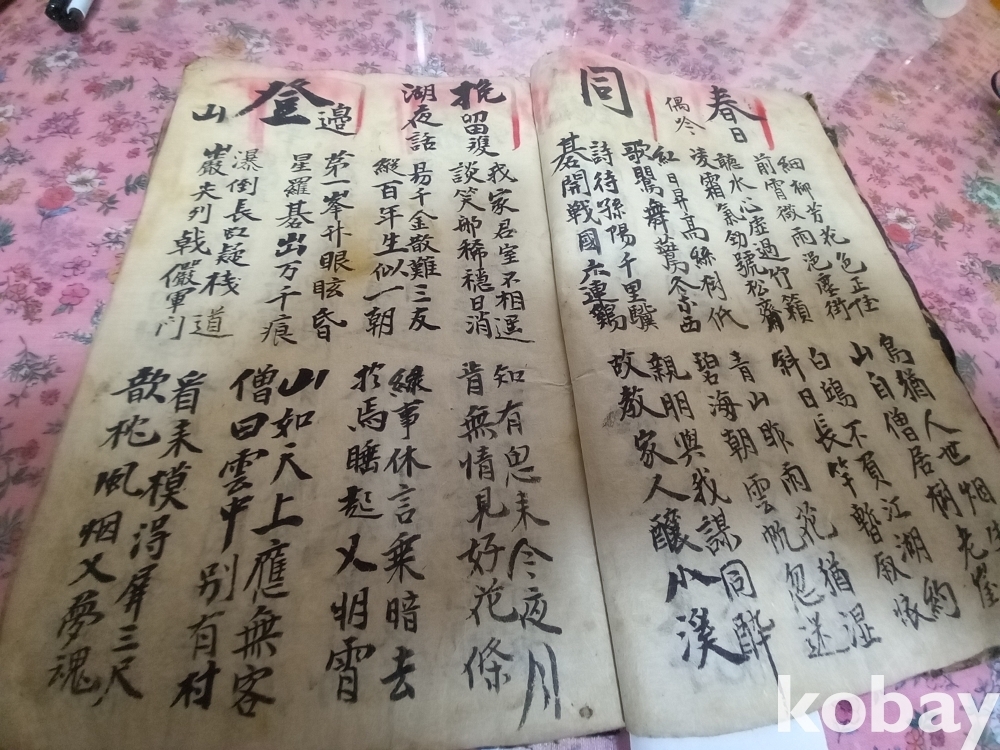 春日
偶吟
細柳芳花色正佳
前宵微雨浥塵街
聽水心虛過竹籟
凌霜氣勁號松齋
鳥猶人世烟
山自僧居樹老崖
白鷗不負江湖約
斜日長竿暫厭懷
同
紅日昇高絲樹低
歌鶯舞各東西
詩待孫陽千里驥
碁開戰國六連鷄
青山昨雨花猶湿
碧海朝雲帆忽送
親朋與我謀同醉
故教家人釀小溪
挽留瓊
湖夜話
我家君室不相遥
談笑那稀穩日消
易千金散難三友
縱百年生似一朝
知有思来今夜月
肯無情見好花條
緣事休言乗暗去
於焉睡起又明宵
登邊
山
第一峯升眼眩昏
星羅碁出万千痕
瀑倒長虹疑棧道
巖夾列戟儼軍门
山如天上應無客
僧曰雲中別有村
看来模得屏三尺
欹枕風烟又夢魂
kobay